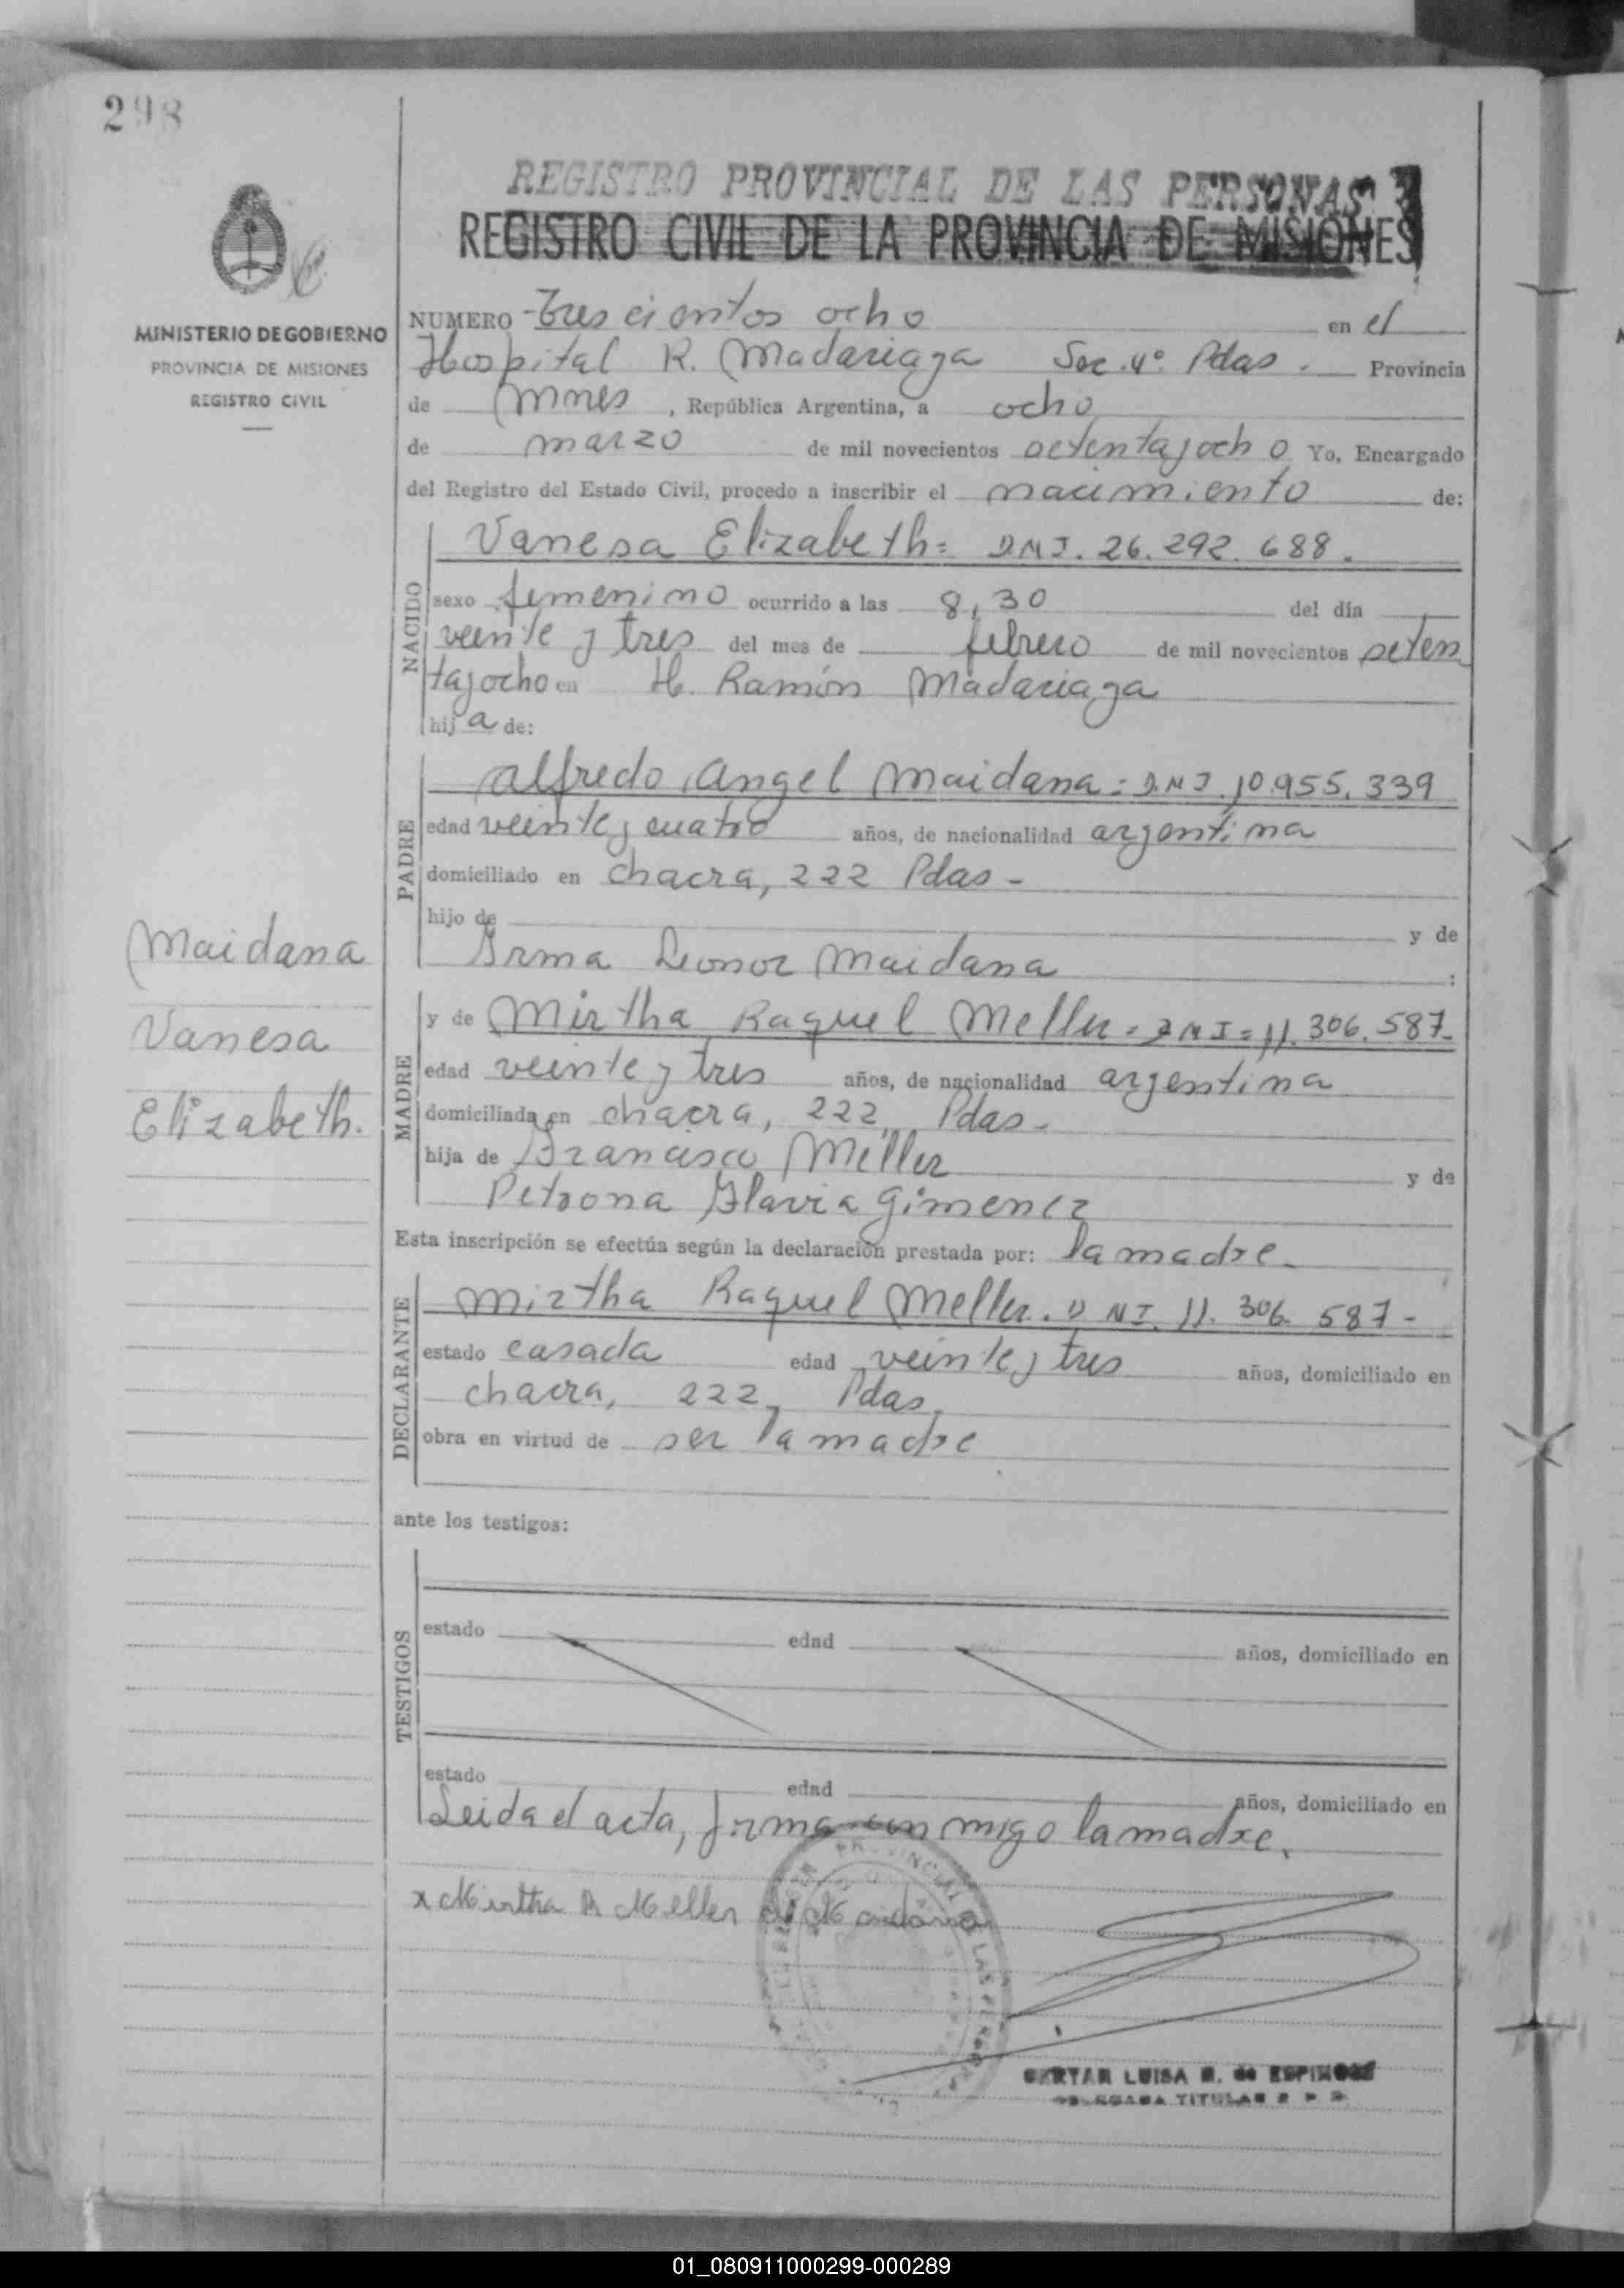 298
REGISTRO PROVINCIAL DE LAS PERSONAS
REGISTRO CIVIL DE LA PROVINCIA DE MISIONES
MINISTERIO DE GOBIERNO
PROVINCIA DE MISIONES
REGISTRO CIVIL
NUMERO - trescientos ocho en el
Hospital R. Madariaga Sec. 4º Pdas. Provincia
de Mnes, República Argentina, a ocho
de marzo de mil novecientos setentayocho Yo, Encargado
del Registro del Estado Civil, procedo a inscribir el nacimiento de:
NACIDO
Vanesa Elizabeth = DNI. 26.292.688.
sexo femenino ocurrido a las 8,30 del día
veinte y tres del mes de febrero de mil novecientos seten
tayocho en H. Ramón Madariaga
hija de:
PADRE
Alfredo Angel Maidana = D.N.I. 10.955.339
edad veinte y cuatro años, de nacionalidad argentina
domiciliado en chacra, 222 Pdas -
hijo de y de
Irma Leonor Maidana :
Maidana
Vanesa
Elizabeth.
MADRE
y de Mirtha Raquel Meller = DNI = 11.306.587-
edad veinte y tres años, de nacionalidad argentina
domiciliada en chacra, 222, Pdas -
hija de Francisco Meller y de
Petrona Flavia Gimenez
Esta inscripción se efectúa según la declaración prestada por: la madre -
DECLARANTE
Mirtha Raquel Meller. DNI. 11.306.587-
estado casada edad veinte y tres años, domiciliado en
chacra, 222, Pdas.
obra en virtud de ser la madre
ante los testigos:
TESTIGOS
estado edad años, domiciliado en
estado edad años, domiciliado en
Leida el acta, firma conmigo la madre.
x Mirtha R Meller de Maidana
LUISA M. de ESPINOSA
TITULAR
01_080911000299-000289